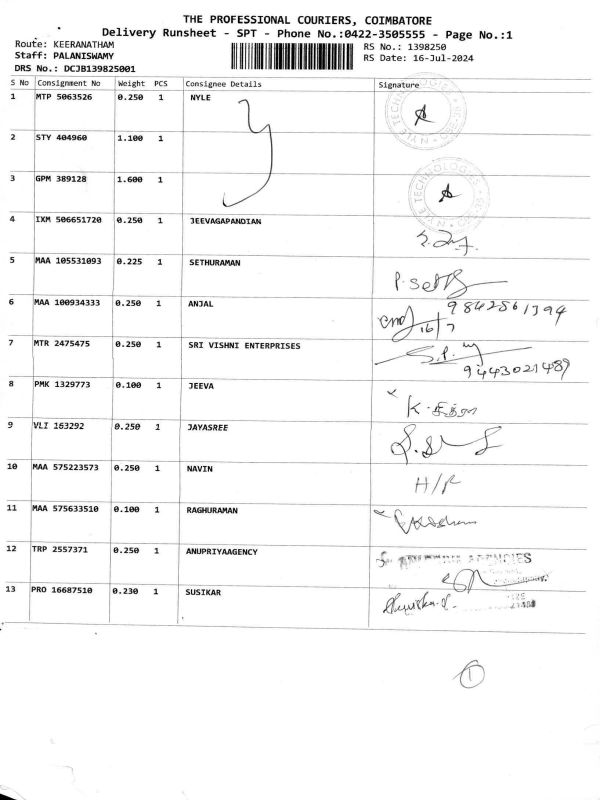 THE PROFESSIONAL COURIERS, COIMBATORE
Delivery Runsheet - SPT - Phone No.:0422-3505555 - Page No.:1
Route: KEERANATHAM RS No.: 1398250
Staff: PALANISWAMY RS Date: 16-Jul-2024
DRS No.: DCJB139825001
S No Consignment No Weight PCS Consignee Details Signature
1 MTP 5063526 0.250 1 NYLE
NYLE TECHNOLOGIES
2 STY 404960 1.100 1
3 GPM 389128 1.600 1
NYLE TECHNOLOGIES
4 IXM 506651720 0.250 1 JEEVAGAPANDIAN
5 MAA 105531093 0.225 1 SETHURAMAN
6 MAA 100934333 0.250 1 ANJAL 9842561394
16/7
7 MTR 2475475 0.250 1 SRI VISHNI ENTERPRISES
9443021489
8 PMK 1329773 0.100 1 JEEVA K. சித்ரா
9 VLI 163292 0.250 1 JAYASREE
10 MAA 575223573 0.250 1 NAVIN H/F
11 MAA 575633510 0.100 1 RAGHURAMAN
12 TRP 2557371 0.250 1 ANUPRIYAAGENCY AGENCIES
13 PRO 16687510 0.230 1 SUSIKAR
1